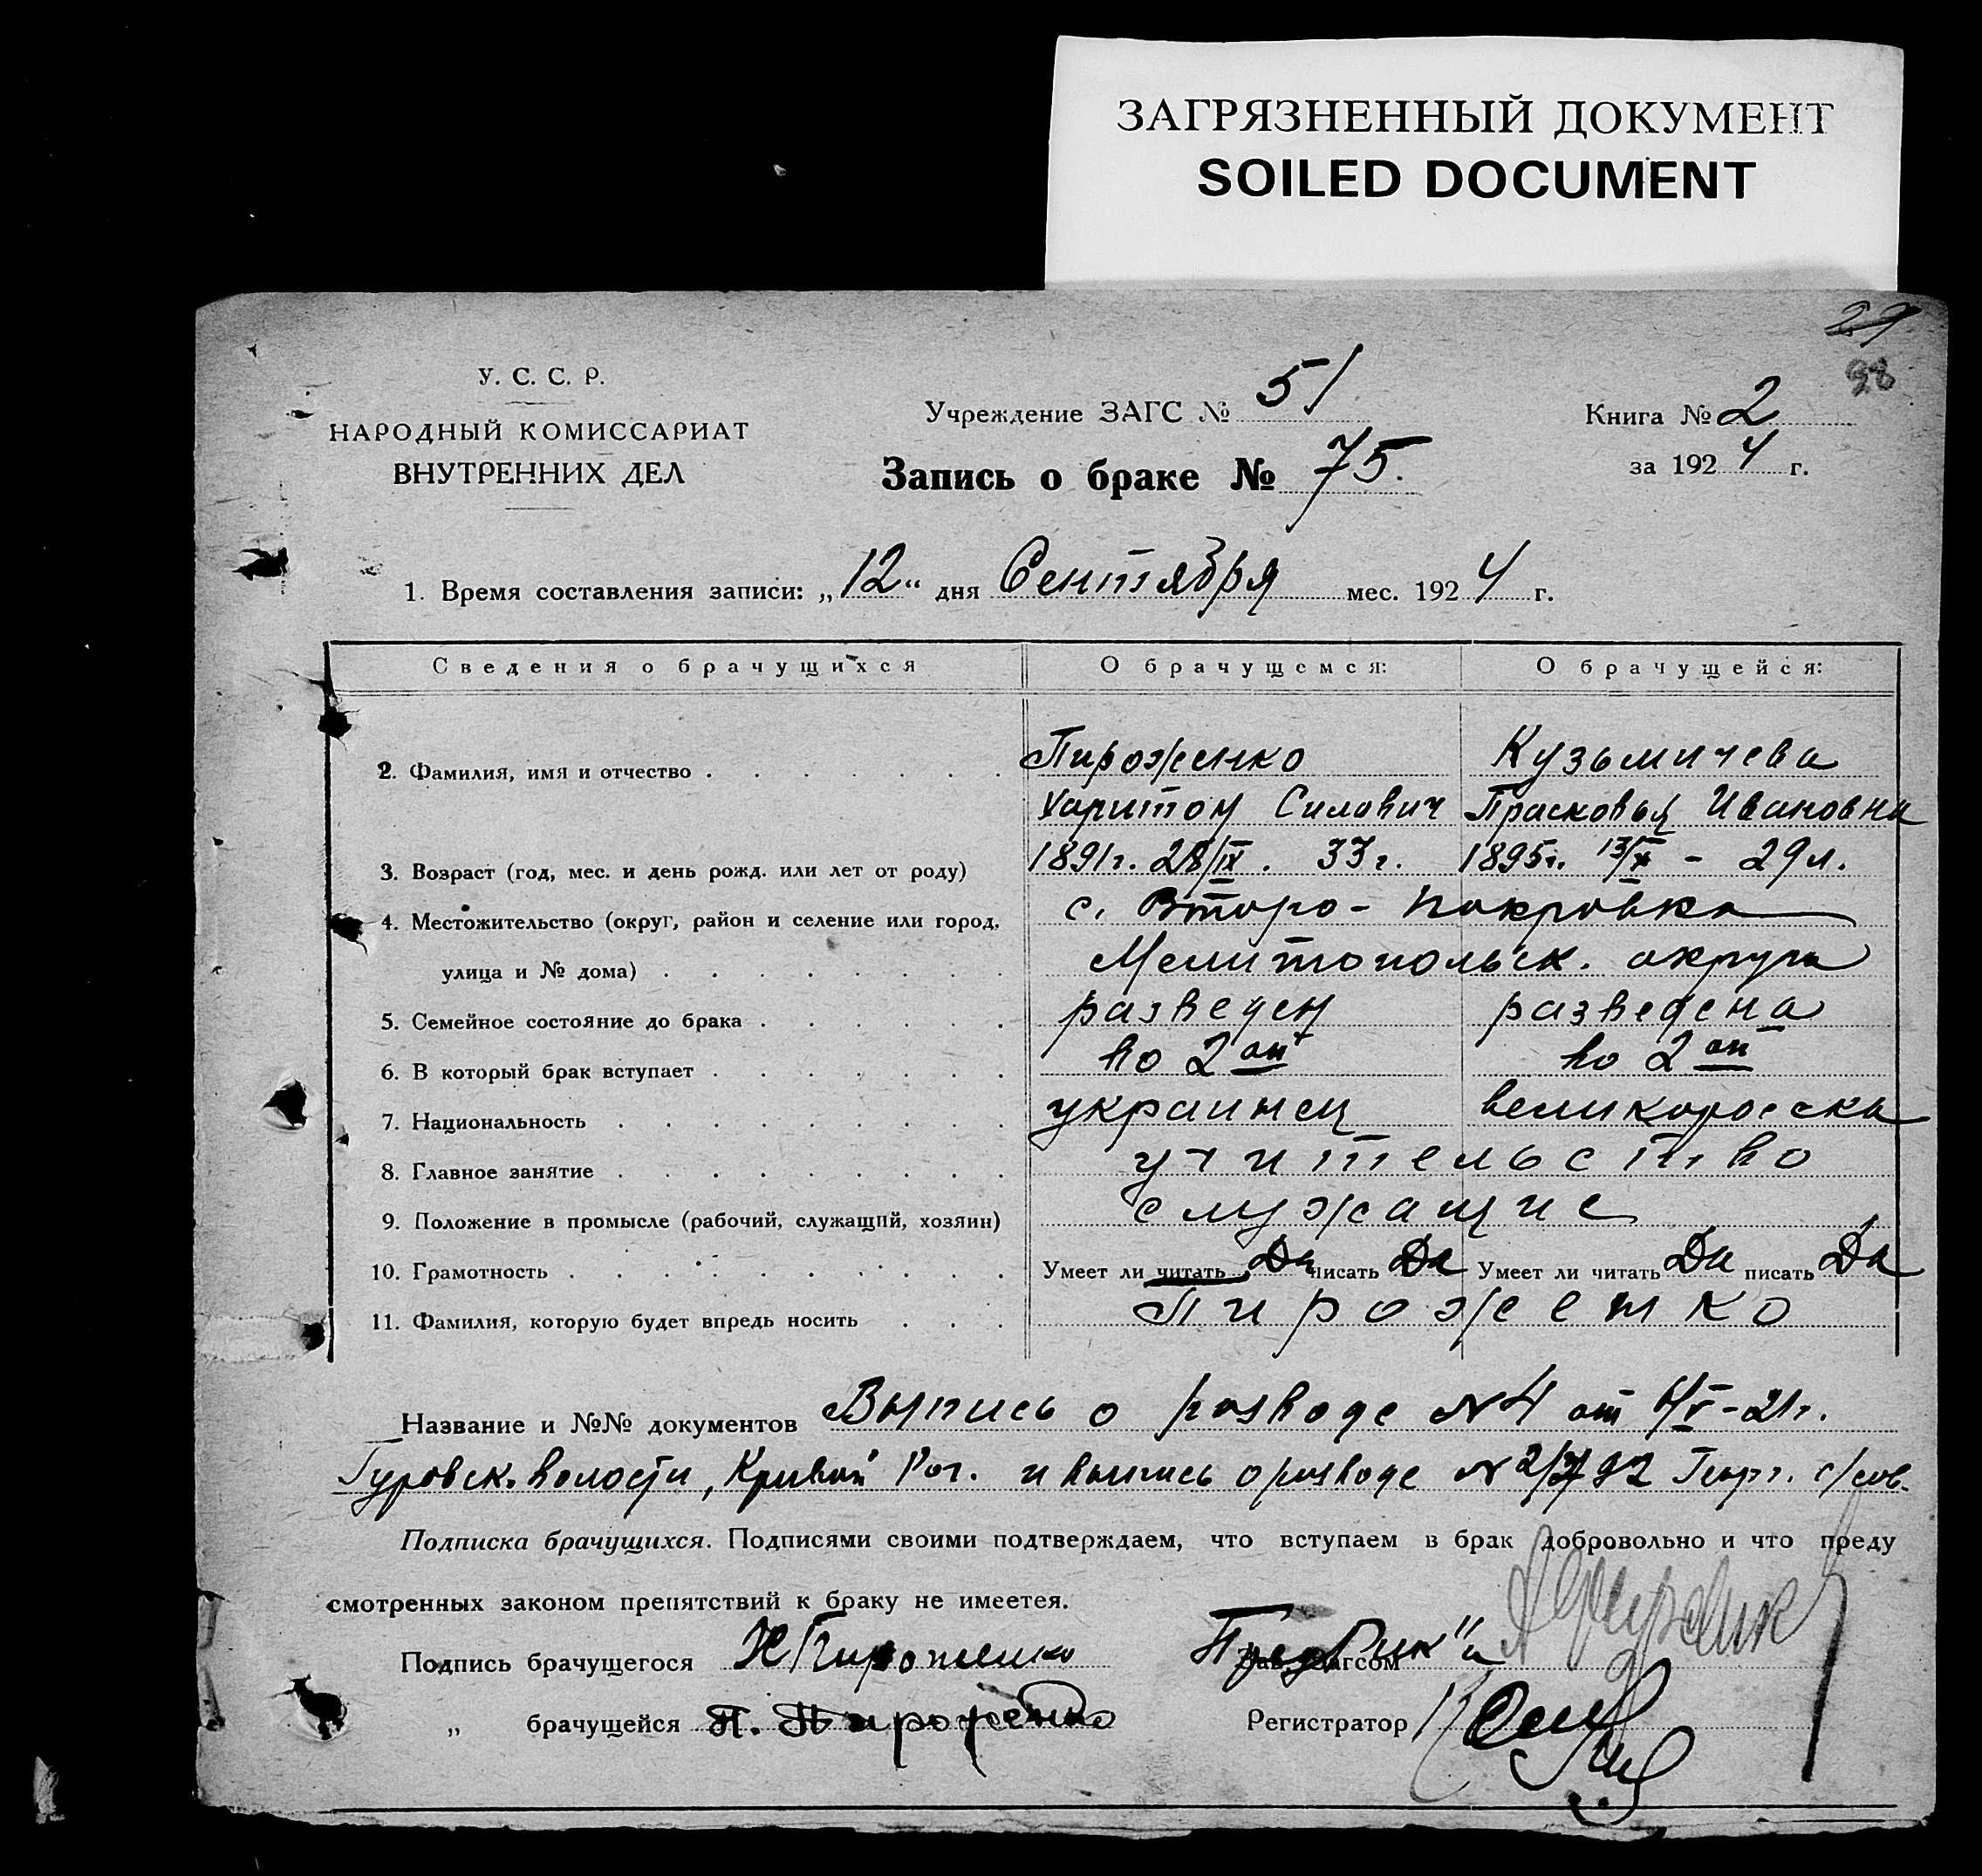 ЗАГРЯЗНЕННЫЙ ДОКУМЕНТ
SOILED DOCUMENT
29
98
У. С. С. Р.
НАРОДНЫЙ КОМИССАРИАТ
ВНУТРЕННИХ ДЕЛ
Учреждение ЗАГС № 51
Книга № 2
за 1924 г.
Запись о браке № 75.
1. Время составления записи: „12“ дня Сентября мес. 1924 г.
Сведения о брачущихся О брачущемся: О брачущейся:
2. Фамилия, имя и отчество Пироженко Кузьмичева
Харитон Силавич Прасковья Ивановна
3. Возраст (год, мес. и день рожд. или лет от роду) 1891г. 28/IX. 33 г. 1895г. 13/X - 29 л.
4. Местожительство (округ, район и селение или город, с. Второ-Покровка
улица и № дома) Мелитопольск. округа
5. Семейное состояние до брака разведен разведена
6. В который брак вступает во 2ой во 2ой
7. Национальность украинец великоросска
8. Главное занятие учительство
9. Положение в промысле (рабочий, служащий, хозяин) служащие
10. Грамотность Умеет ли читать Да писать Да Умеет ли читать Да писать Да
11. Фамилия, которую будет впредь носить Пироженко
Название и №№ документов Выпись о разводе №4 от 4/V-21г.
Гуровск. волости, Кривой Рог. и выпись о разводе № с/сов.
Подписка брачущихся. Подписями своими подтверждаем, что вступаем в брак добровольно и что преду
смотренных законом препятствий к браку не имеется.
Подпись брачущегося Х Пироженко Зав. Загсом Пред Рик"а
„ брачущейся П. Пироженко Регистратор